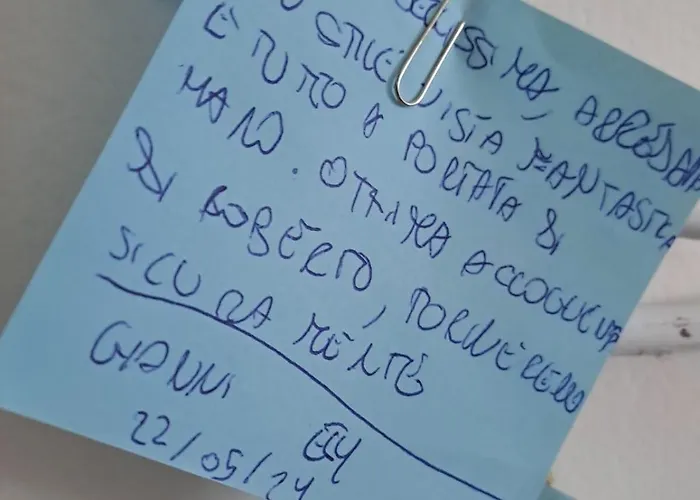 ISSIMA, ARREDAM
STILE VISTA FANTASTICA
È TUTTO A PORTATA DI
MANO. OTTIMA ACCOGLIENZA
DI ROBERTO, TORNEREMO
SICURAMENTE
GIANNI
22/05/24